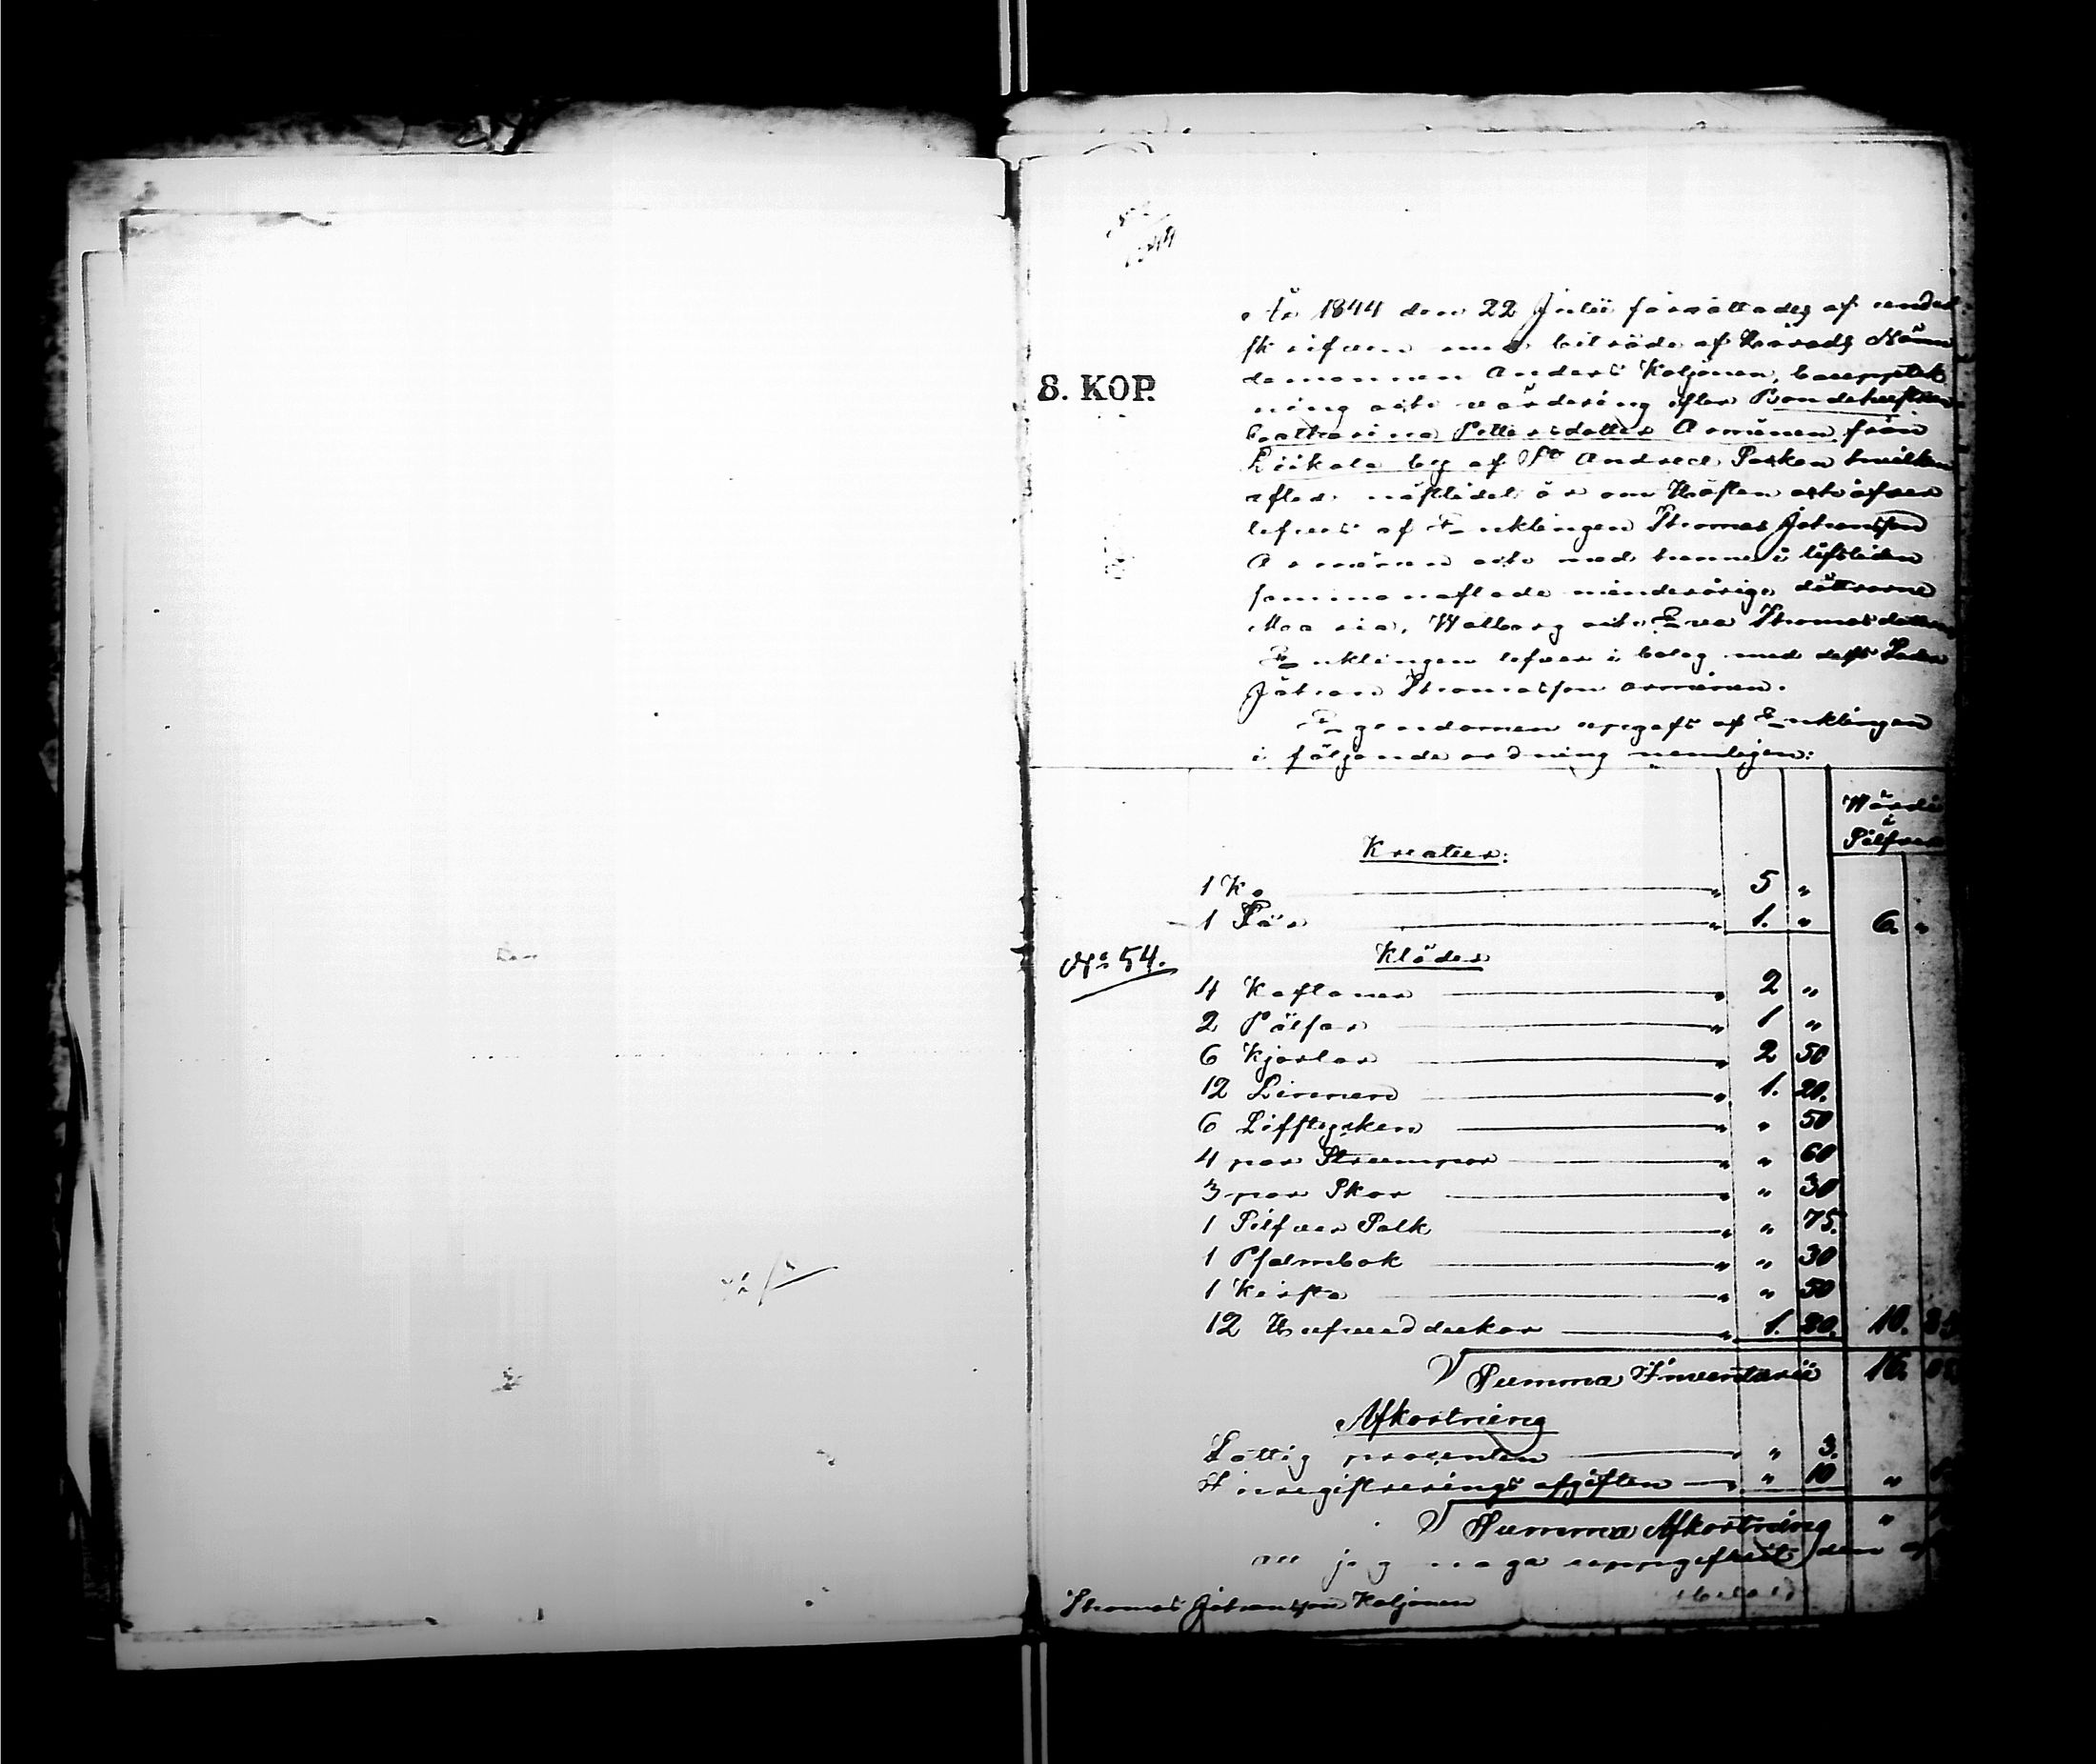 År 1844 den 22 Julii förrättades af under
skrifven med biträde af Härads Nämn
demannen Anders Koljonen, bouppteck
8. KOP.
ning och värdering efter Bondehustrun
Catharina Pettersdotter Arminen från
Liikala by af St Andreæ Socken hvilken
efter nästlidet år om Hösten och öfver
lefves af Enklingen Thomas Johansson
Arminen och med henne i lifstiden
sammanaflade minderåriga döttrarne
Maria, Walborg och Eva Thomasdöttrar
Enklingen lefver i bolag med dess Fader
Johan Thomasson Arminen.
Egendomen uppgafs af Enklingen
i följande ordning nemligen:
Wärde
i
Silfver
Kreatur:
1 Ko " 5 "
1 Får " 1. " 6. "
No 54.
Kläder
4 Kaftaner " 2 "
2 Pälsar " 1 "
6 Kjortlar " 2 50
12 Linnen " 1. 20.
6 Lifstycken " " 50
4 par Strumpor " " 60
3 par Skor " " 30
1 Silfver Solk " " 75.
1 Psalmbok " " 30
1 Kista " " 50
12 Hufvuddukor " 1. 20. 10.
Summa Inventarii 16.
Afkortning
Fattig procenten " " 3.
Inregistrerings afgiften " " 10 "
Summa Afkortning "
jag noga uppgifvit den
Thomas Johansson Koljonen